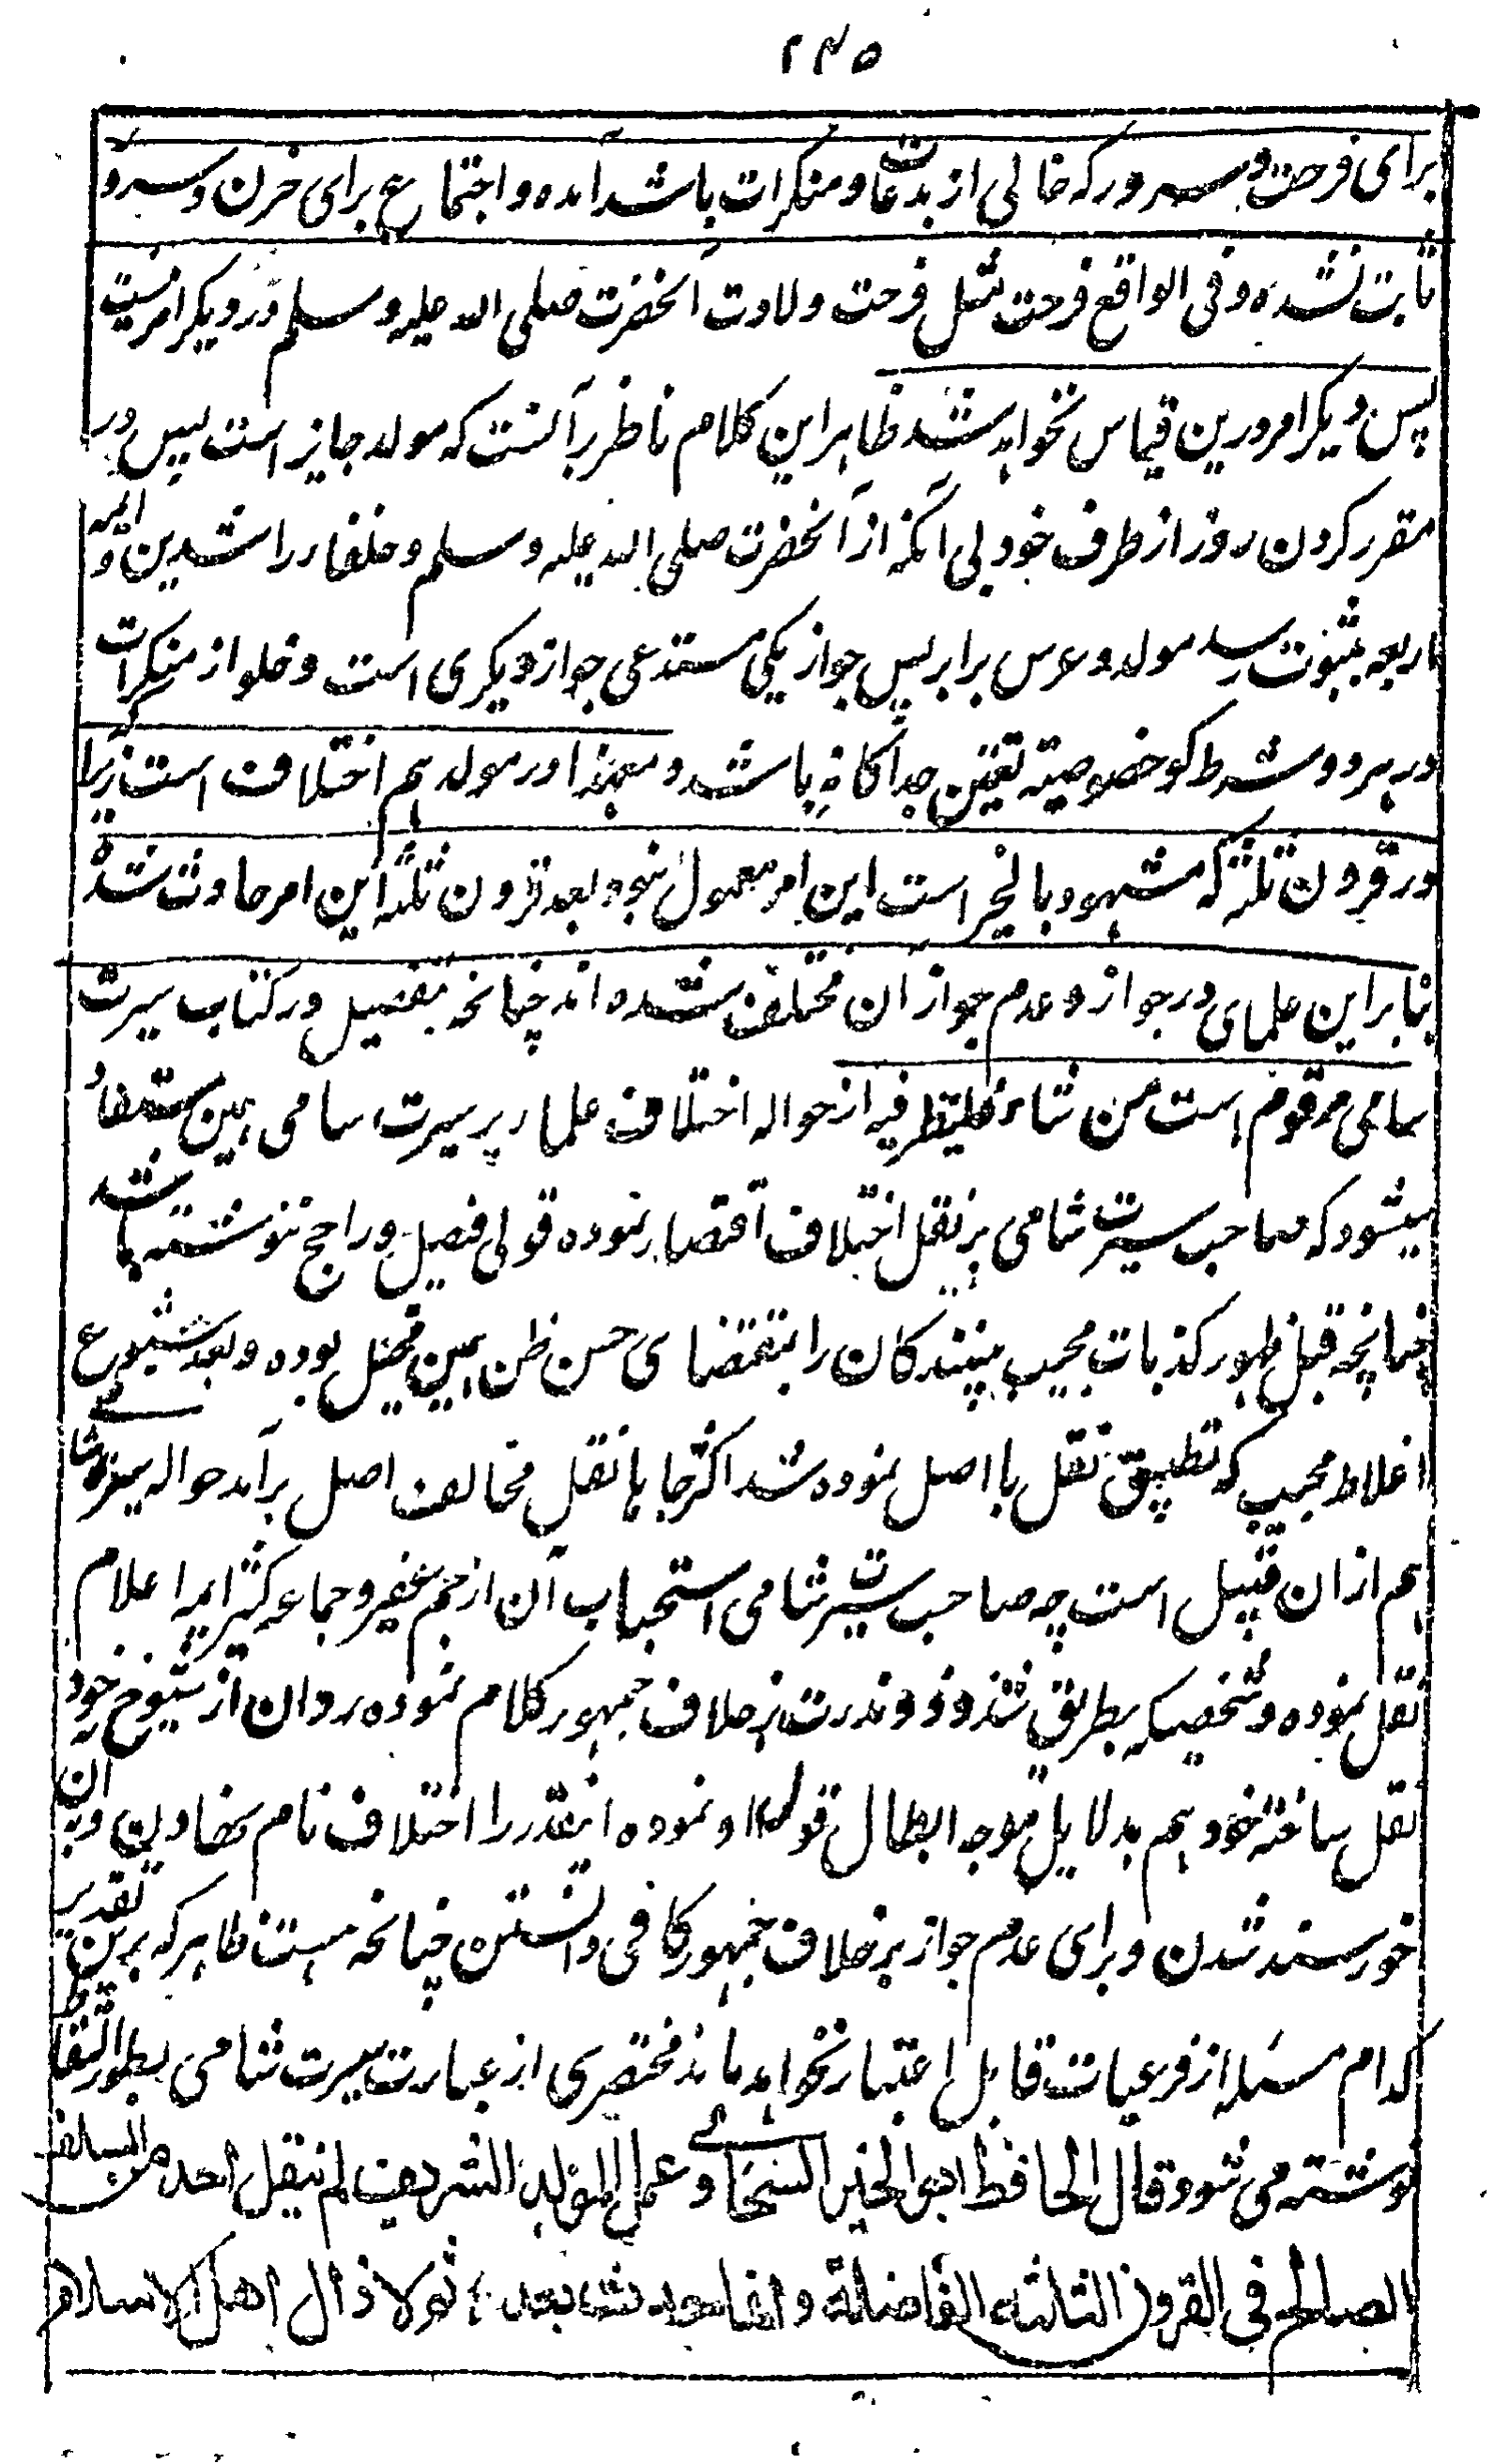 ۲۴۵
برای فرحت و سرور که خالی از بدعات و منکرات باشد آمده و اجتماع برای حزن و سرور
ثابت نشده و فی الواقع فرحت مثل فرحت ولادت آنحضرت صلی الله علیه و سلم در دیگر امر نیست
پس دیگر امر درین قیاس نخواهد شد ظاهر این کلام ناظر بر آنست که مولد جایز است پس در
مقرر کردن روز از طرف خود بی آنکه از آنحضرت صلی الله علیه و سلم و خلفاء راشدین و ایمه
اربعه بثبوت رسد مولد و عرس برابر پس جواز یکی مستدعی جواز دیگری است و خلو از منکرات
در هر دو شرط گو خصوصیة تعین جداگانه باشد و معهذا در مولد هم اختلاف است زیرا که
در قرون ثلثه که مشهود بالخیر است این امر معمول نبود بعد قرون ثلثه این امر حادث شده
بنا براین علمای در جواز و عدم جواز آن مختلف شده اند چنانچه بتفصیل در کتاب سیرت
سامی مرقوم است من شاء فلینظر فیه از حواله اختلاف علماء بر سیرت سامی همین مستفاد
میشود که صاحب سیرت شامی بر نقل اختلاف اقتصار نموده قولی فیصل و راجح ننوشته باشد
چنانچه قبل ظهور کذبات مجیب بینندگان را بمقتضای حسن ظن همین مخیل بوده و بعد شیوع
اغلاط مجیب که تطبیق نقل با اصل نموده شد اکثر جاها نقل مخالف اصل برآمد حواله سیرة شامی
هم از ان قبیل است چه صاحب سیرت شامی استحباب آن از جم غفیر و جماعه کثیر ایمه اعلام
نقل نموده و شخصیکه بطریق شذوذ و ندرت بر خلاف جمهور کلام نموده رد آن از شیوخ خود
نقل ساخته خود هم بدلایل موجه ابطال قول او نموده اینقدر را اختلاف نام نهادن و بر آن
خورسند شدن و برای عدم جواز بر خلاف جمهور کافی دانستن چنانچه هست ظاهر که برین تقدیر
کدام مسئله از فرعیات قابل اعتبار نخواهد ماند مختصری از عبارت سیرت شامی بطور التقاط
نوشته می شود قال الحافظ ابو الخیر السخاوی عمل المولد الشریف لم ینقل احد من السلف
الصالح فی القرون الثلثة الفاضلة و انما حدث بعد ثم لا زال اهل الاسلام